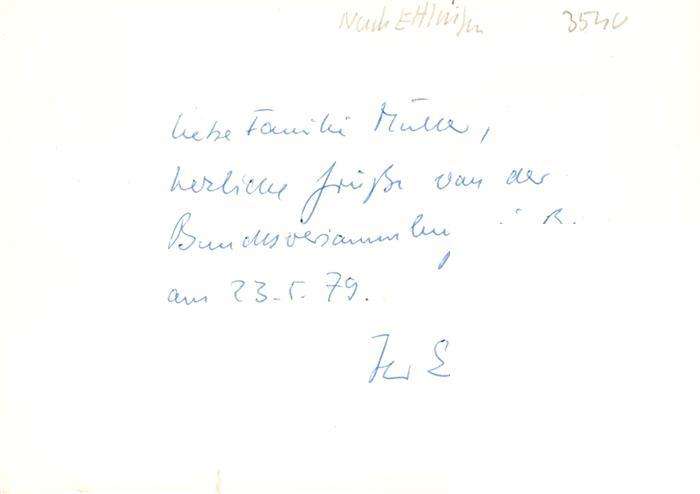 Nach Ettlingen
Liebe Familie Müller,
herzliche Grüße von der
Bundesversammlung
am 23.5.79.
Ihr E